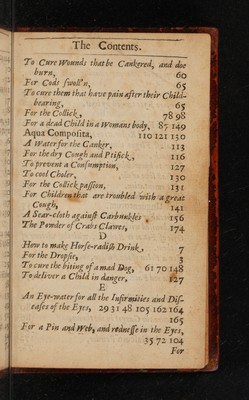 The Contents.
To Cure Wounds that be Cankered, and doe
burn, 60
For Cods swoll'n, 65
To cure them that have pain after their Child-
bearing, 65
For the Collick, 78 98
For a dead Child in a Womans body, 87 149
Aqua Composita, 110 121 150
A Water for the Canker, 113
For the dry Cough and Ptisick, 116
To prevent a Consumption, 127
To cool Choler, 130
For the Collick passion, 131
For Children that are troubled with a great
Cough, 141
A Sear-cloth against Carbunkles 156
The Powder of Crabs Clawes, 174
D
How to make Horse-radish Drink, 7
For the Dropsie, 3
To cure the biting of a mad Dog, 61 70 148
To deliver a Child in danger, 127
E
An Eye-water for all the Infirmities and Dis-
eases of the Eyes, 29 31 48 105 162 164
165
For a Pin and Web, and rednesse in the Eyes,
35 72 104
For